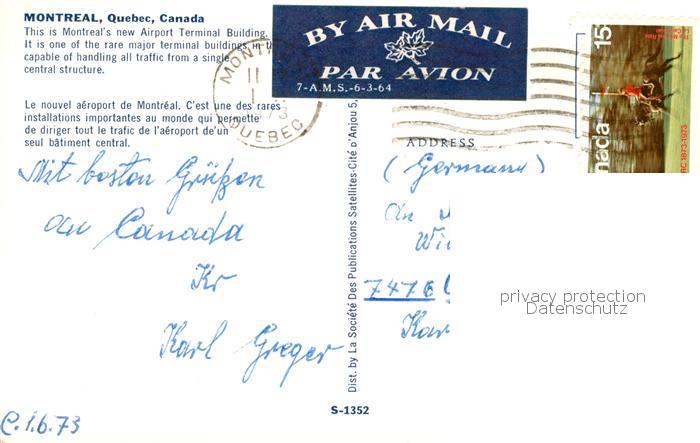 MONTREAL, Quebec, Canada
This is Montreal's new Airport Terminal Building.
It is one of the rare major terminal buildings in th
capable of handling all traffic from a single
central structure.
Le nouvel aéroport de Montréal. C'est une des rares
installations importantes au monde qui permette
de diriger tout le trafic de l'aéroport de'un
seul bâtiment central.
MONT
11
QUEBEC
BY AIR MAIL
PAR AVION
7-A.M.S.-6-3-64
15
nada
1873-1973
ADDRESS
Mit besten Grüßen
an Canada
Kr
Karl Greger
C. 1.6.73
(Germany)
An
Wi
7476
Kar
Dist. by La Société Des Publications Satellites-Cité d'Anjou 5,
S-1352
privacy protection
Datenschutz